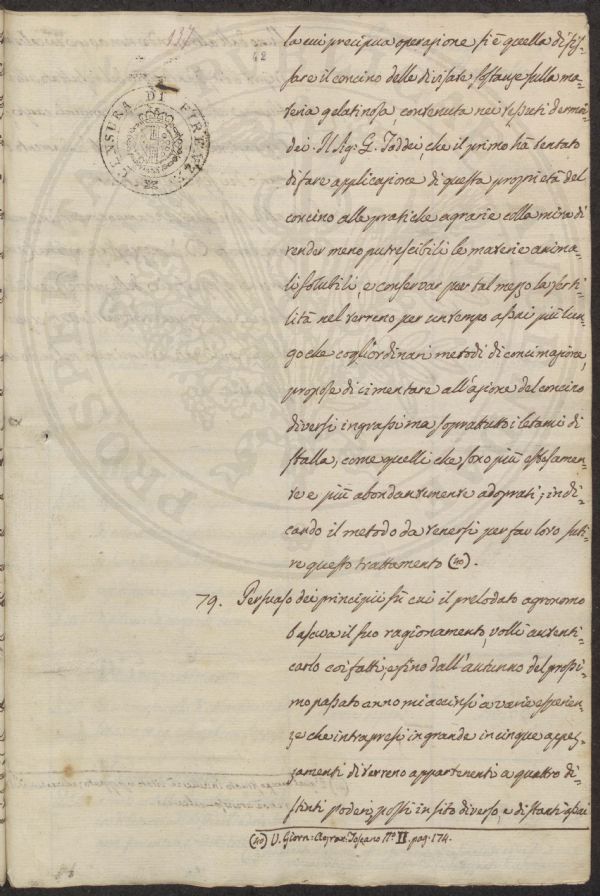 137
42
CENSURA DI FIRENZE
la cui precipua operazione si è quella di fis-
sare il concino delle divisate sostanze sulla ma-
teria gelatinosa contenuta nei tessuti dermoi-
dei. Il Sig: G. Taddei, che il primo hà tentato
di fare applicazione di questa proprietà del
concino alle pratiche agrarie colla mira di
render meno putrescibili le materie anima-
li solubili, e conservar per tal mezzo la ferti-
lità nel terreno per un tempo assai più lun-
go che cogli ordinari metodi di concimazione,
propose di cimentare all'azione del concino
diversi ingrassi ma soprattutto i letami di
stalla, come quelli che sono più estesamen-
te e più abondantemente adoprati; indi-
cando il metodo da tenersi per far loro subi-
re questo trattamento (40).
79. Persuaso dei principii sù cui il prelodato agronomo
basava il suo ragionamento, volli autenti-
carlo coi fatti, e fino dall'autunno del prossi-
mo passato anno mi accinsi a varie esperien-
ze che intrapresi in grande in cinque appez-
zamenti di terreno appartenenti a quattro di-
stinti poderi, posti in sito diverso, e distanti assai
(40) V. Giorn: Agrar: Toscano N.º II. pag. 174.